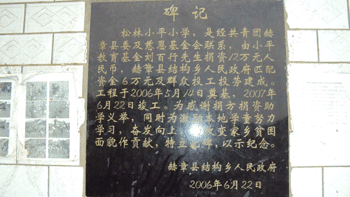 碑记
松林小平小学，是经共青团赫
章县委及慈恩基金会联系，由小平
教育基金刘百行先生捐资12万元人
民币，赫章县结构乡人民政府匹配
资金6万元及群众投工投劳建成。
工程于2006年5月14日奠基，2007年
6月22日竣工。为感谢捐方捐资助
学义举，同时为激励本地学童努力
学习，奋发向上，改变家乡贫困
面貌作贡献，特立此碑，以示纪念。
赫章县结构乡人民政府
2006年6月22日